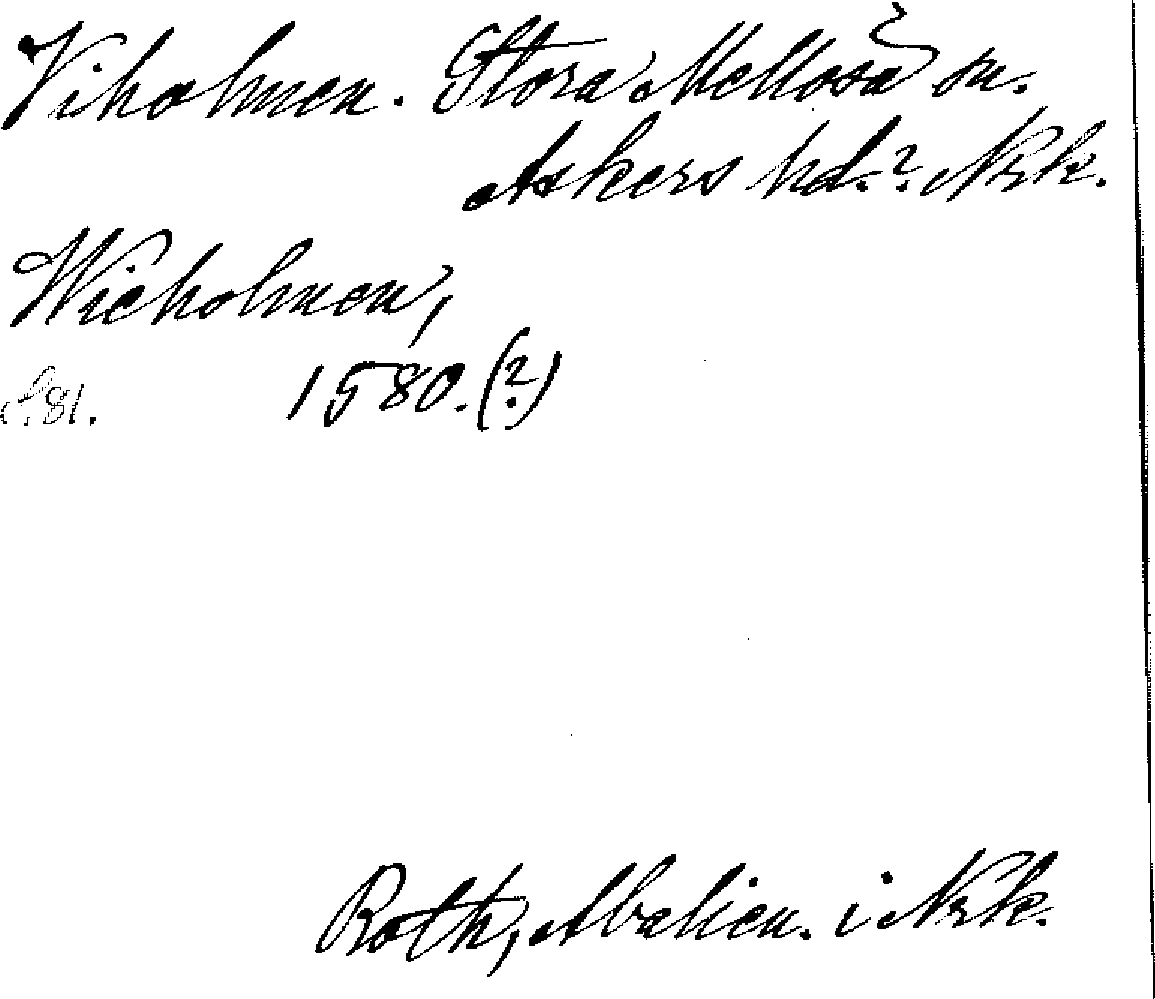 Viholmen. Stora Mellösa sn.
Askers hd.? Nrk.
Wicholmen,
S. 81. 1580.(?)
Roth, Abalien. i Nrk.